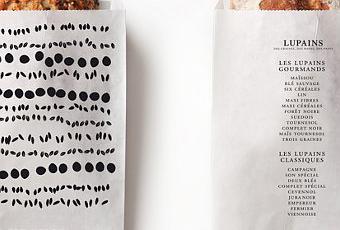 LUPAINS
LES LUPAINS
GOURMANDS
MAÏSHOU
BLÉ SAUVAGE
SIX CÉRÉALES
LIN
MAXI FIBRES
MAXI CÉRÉALES
FORÊT NOIRE
SUEDOIS
TOURNESOL
COMPLET NOIR
MAÏS TOURNESOL
TROIS GRAINES
LES LUPAINS
CLASSIQUES
CAMPAGNE
SON SPÉCIAL
DEUX BLÉS
COMPLET SPÉCIAL
CEVENNOL
JURANOIR
EMPEREUR
FERMIER
VIENNOISE